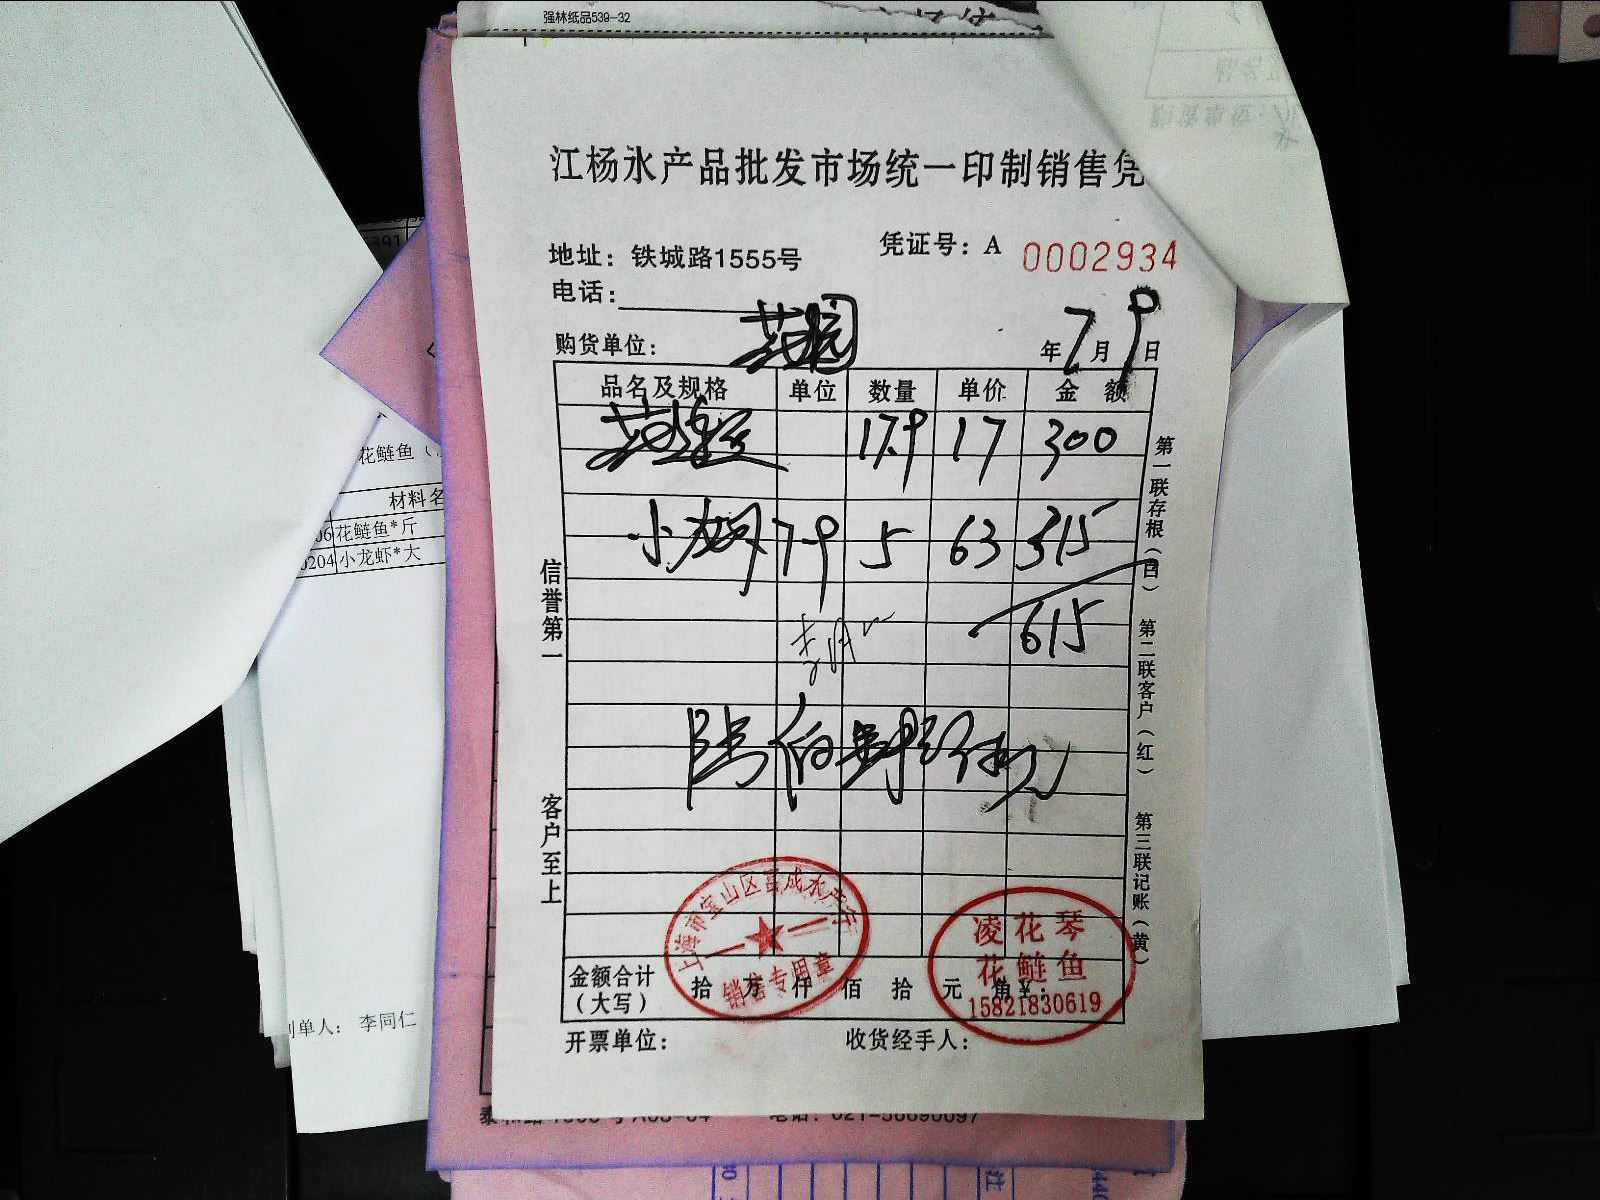 强林纸品539-32
江杨水产品批发市场统一印制销售凭
地址：铁城路1555号
凭证号：A 0002934
电话：
购货单位：
年7月9日
品名及规格 单位 数量 单价 金 额
花鲢 17.9 17 300
小龙虾 79 5 63 315
615
陆佰壹拾伍元
信誉第一
客户至上
第一联存根（白） 第二联客户（红） 第三联记账（黄）
上海市宝山区 成水产行
销售专用章
凌花琴
花鲢鱼
15821830619
金额合计（大写） 拾 万 仟 佰 拾 元 角 ¥：
开票单位： 收货经手人：
花鲢鱼（
材料名
06 花鲢鱼*斤
0204 小龙虾*大
制单人： 李同仁
电话：021-56690697